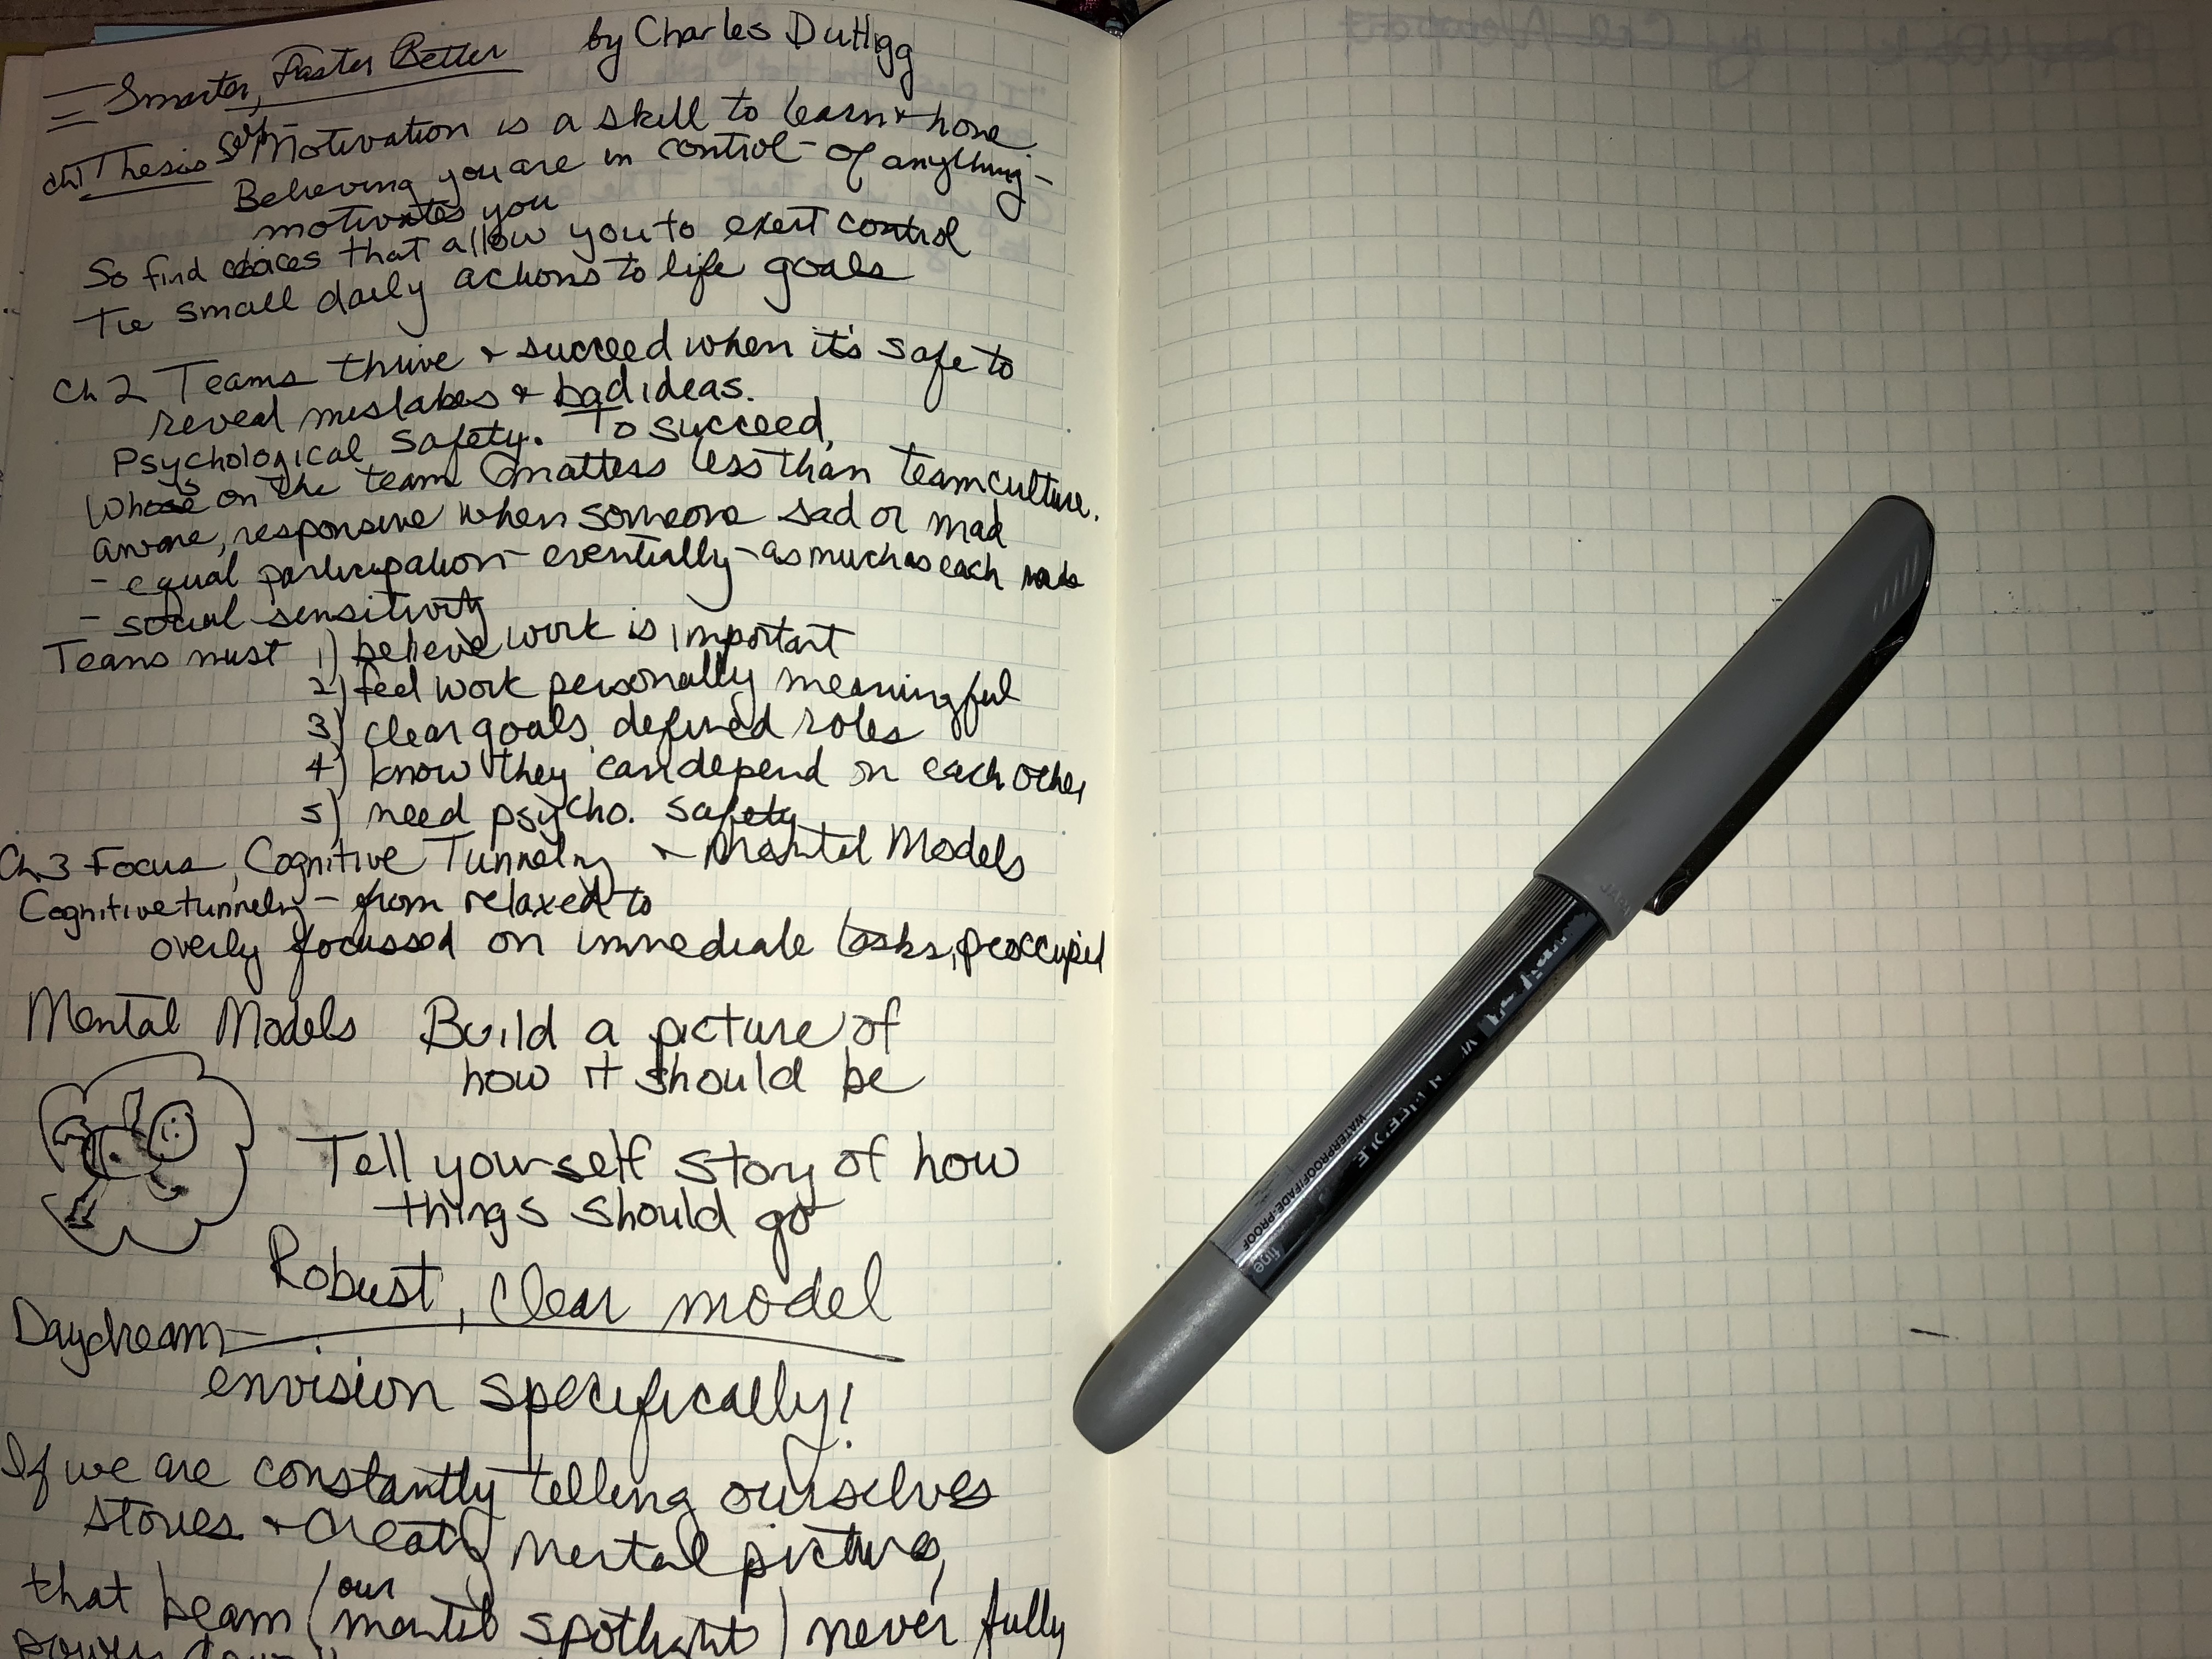 Smarter, Faster Better by Charles Duhigg
Ch1 Thesis Self-Motivation is a skill to learn & hone
Believing you are in control - of anything -
motivates you
So find choices that allow you to exert control
Tie small daily actions to life goals
Ch 2 Teams thrive & succeed when it's safe to
reveal mistakes & bad ideas.
Psychological Safety. To succeed,
Who's on the team matters less than team culture.
aware, responsive when someone sad or mad
- equal participation - eventually - as much as each
- social sensitivity
Teams must 1) believe work is important
2) feel work personally meaningful
3) clear goals, defined roles
4) know they can depend on each other
5) need psycho. safety
Ch 3 Focus, Cognitive Tunneling & Mental Models
Cognitive tunneling - from relaxed to
overly focussed on immediate tasks, preoccupied
Mental Models Build a picture of
how it should be
Tell yourself story of how
things should go
Robust, clear model
Daydream -
envision specifically!
If we are constantly telling ourselves
stories & creating mental pictures,
that beam (our mental spotlight) never fully
WATERPROOF/FADE-PROOF
fine